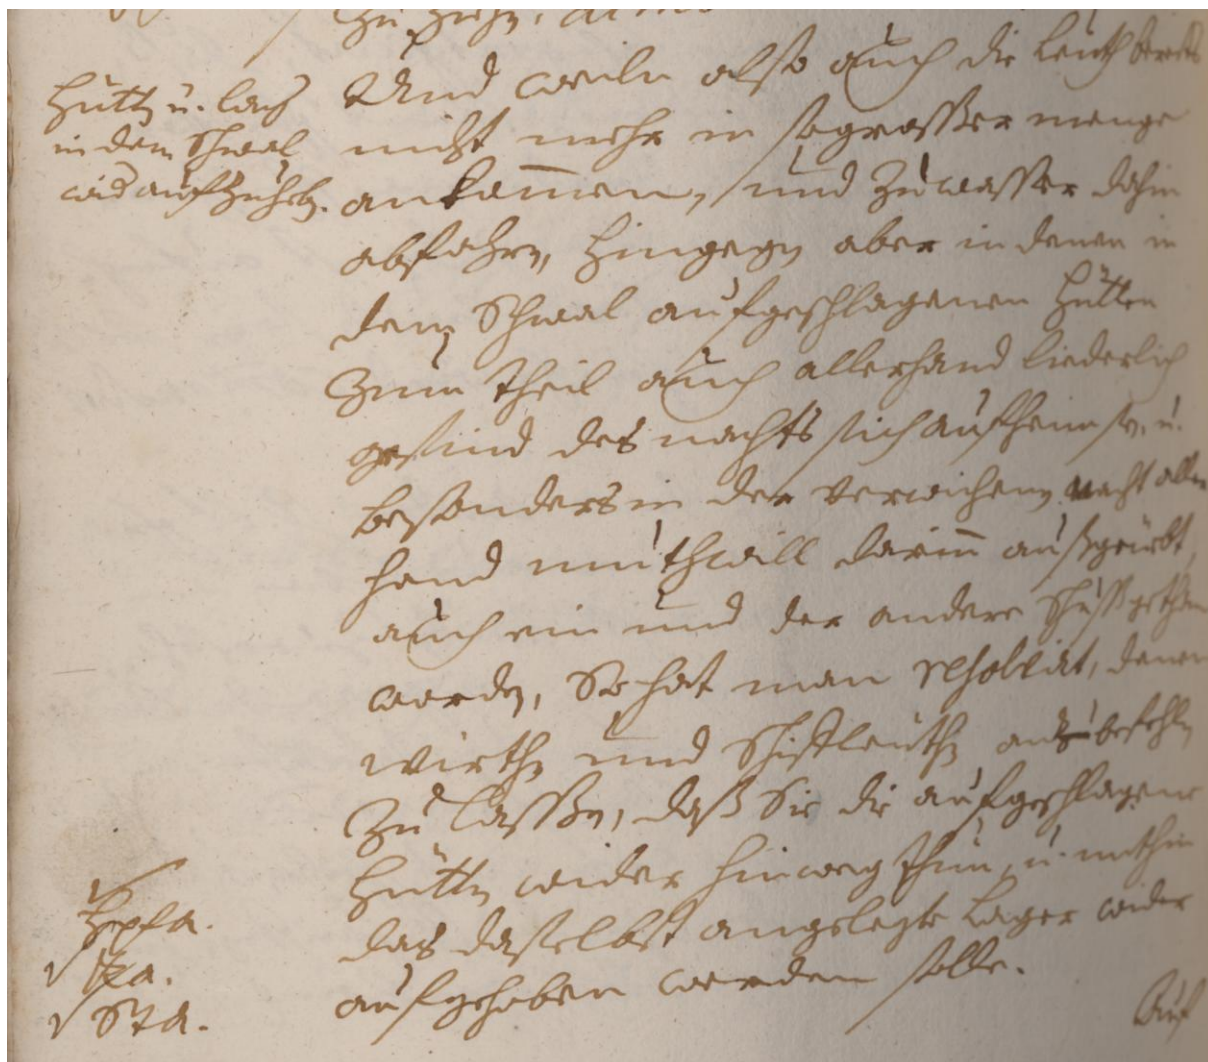 Hütt u. lag
in dem Schwal
wid aufzuheb.
Und weiln also auch die Leuth bereits
nicht mehr in so grosser menge
ankommen, und zu wasser dahin
abfahrn, hingegen aber in denen in
dem Schwal aufgeschlagenen Hütten
Zum theil auch allerhand liederlich
gesind des nachts sich aufheme, u.
besonders in der verwichenen nacht aller
hand muthwill darinn außgeübt,
auch ein und der andere Schuß gethan
worden, So hat man resolvirt, denen
Wirthen und Schiffleuthen befehlen
zu lassen, daß Sie die aufgeschlagene
Hütten wider hinweg thun, u. mithin
das daselbst angelegte Lager wider
aufgehoben werden solle.
Sta.
Auf